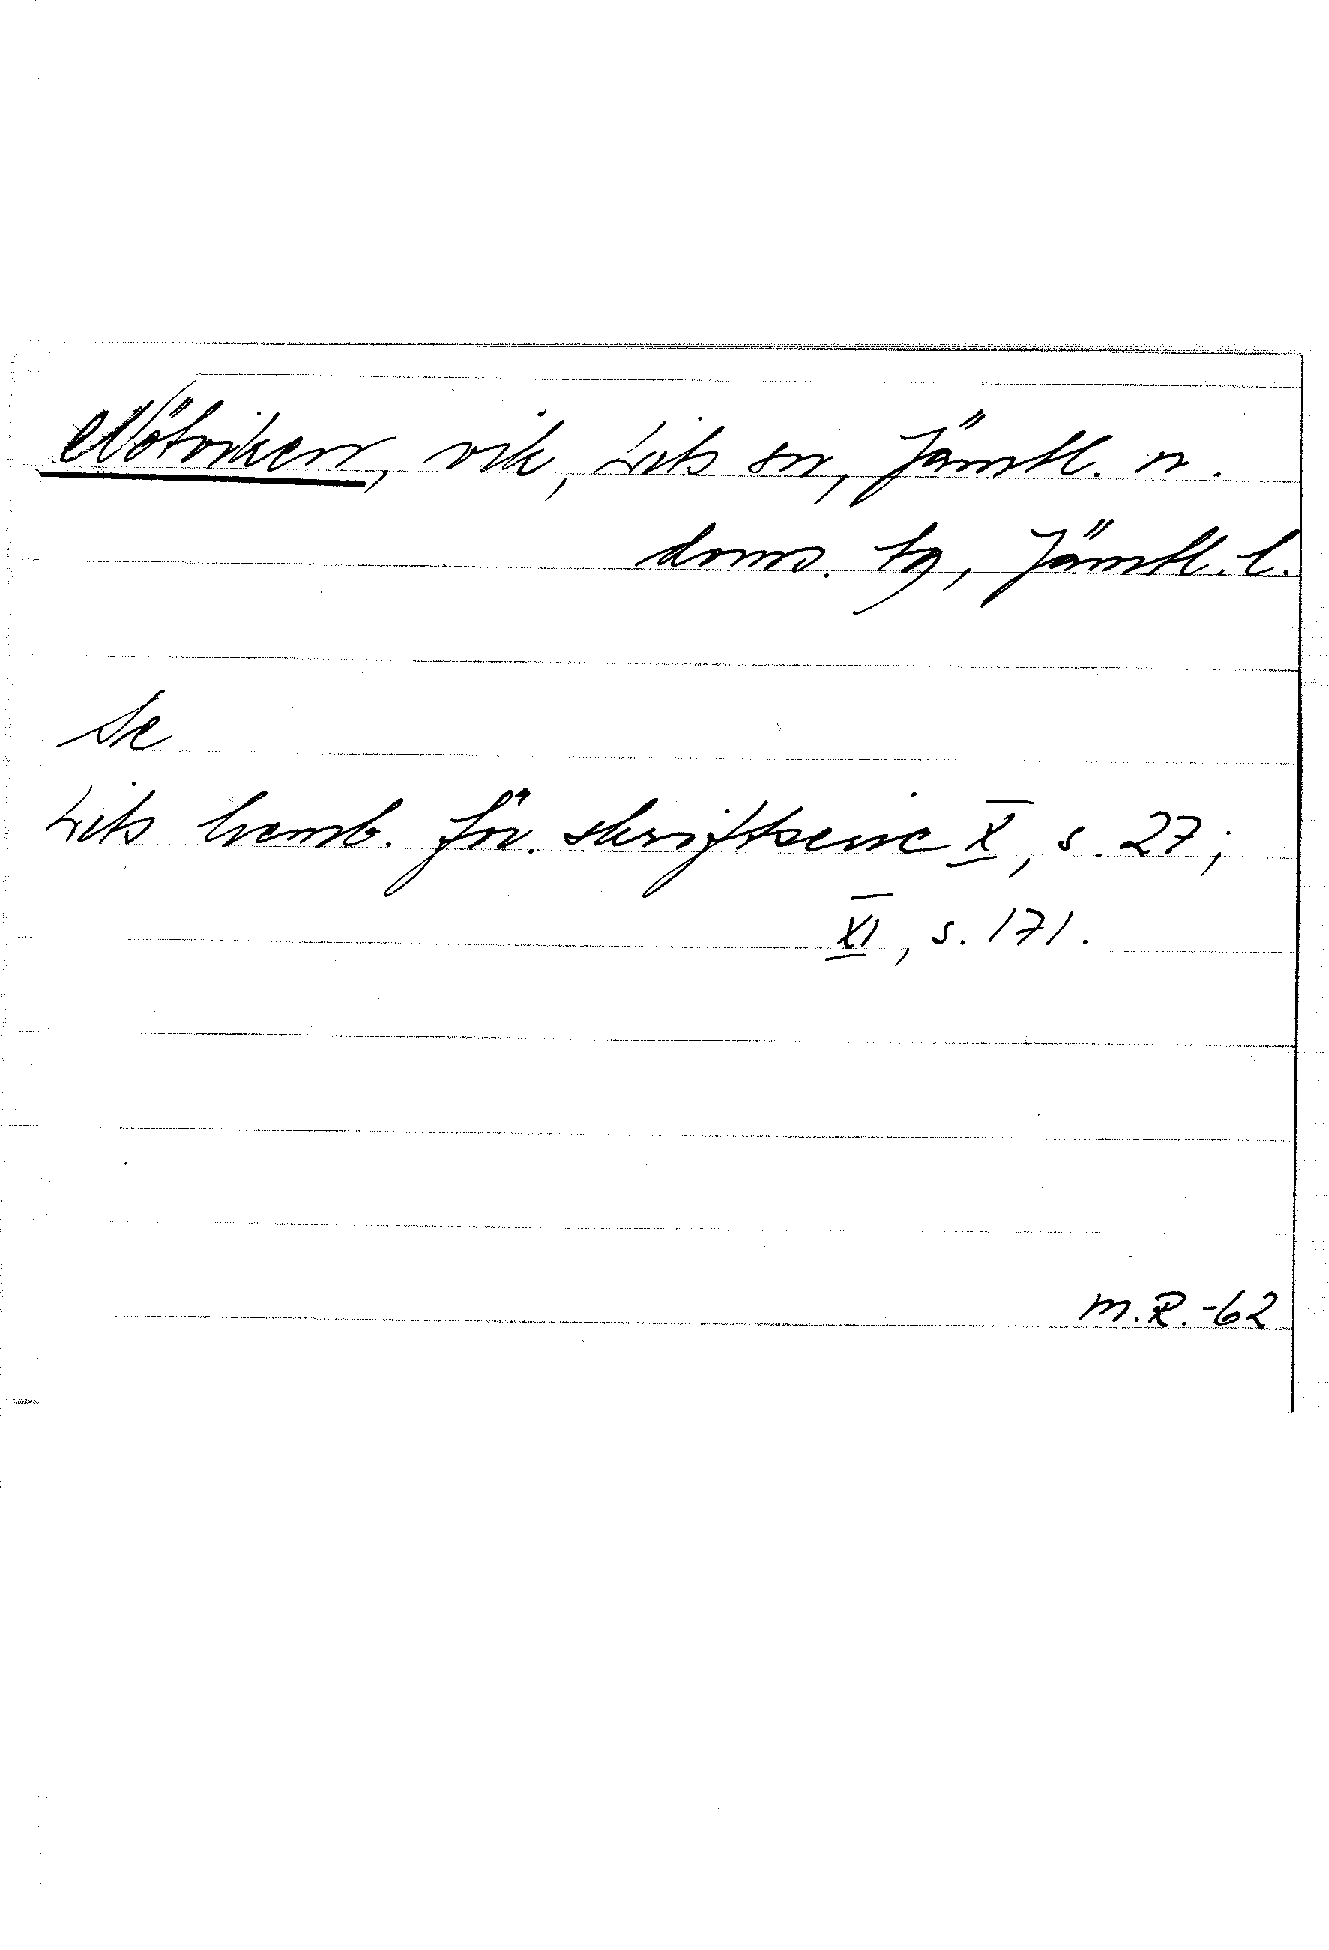 Nötviken, vik, Lits sn, Jämtl. n.
doms. tg, Jämtl. l.
Se
Lits hemb. för. skriftserie X, s. 27;
XI, s. 171.
M.R.-62